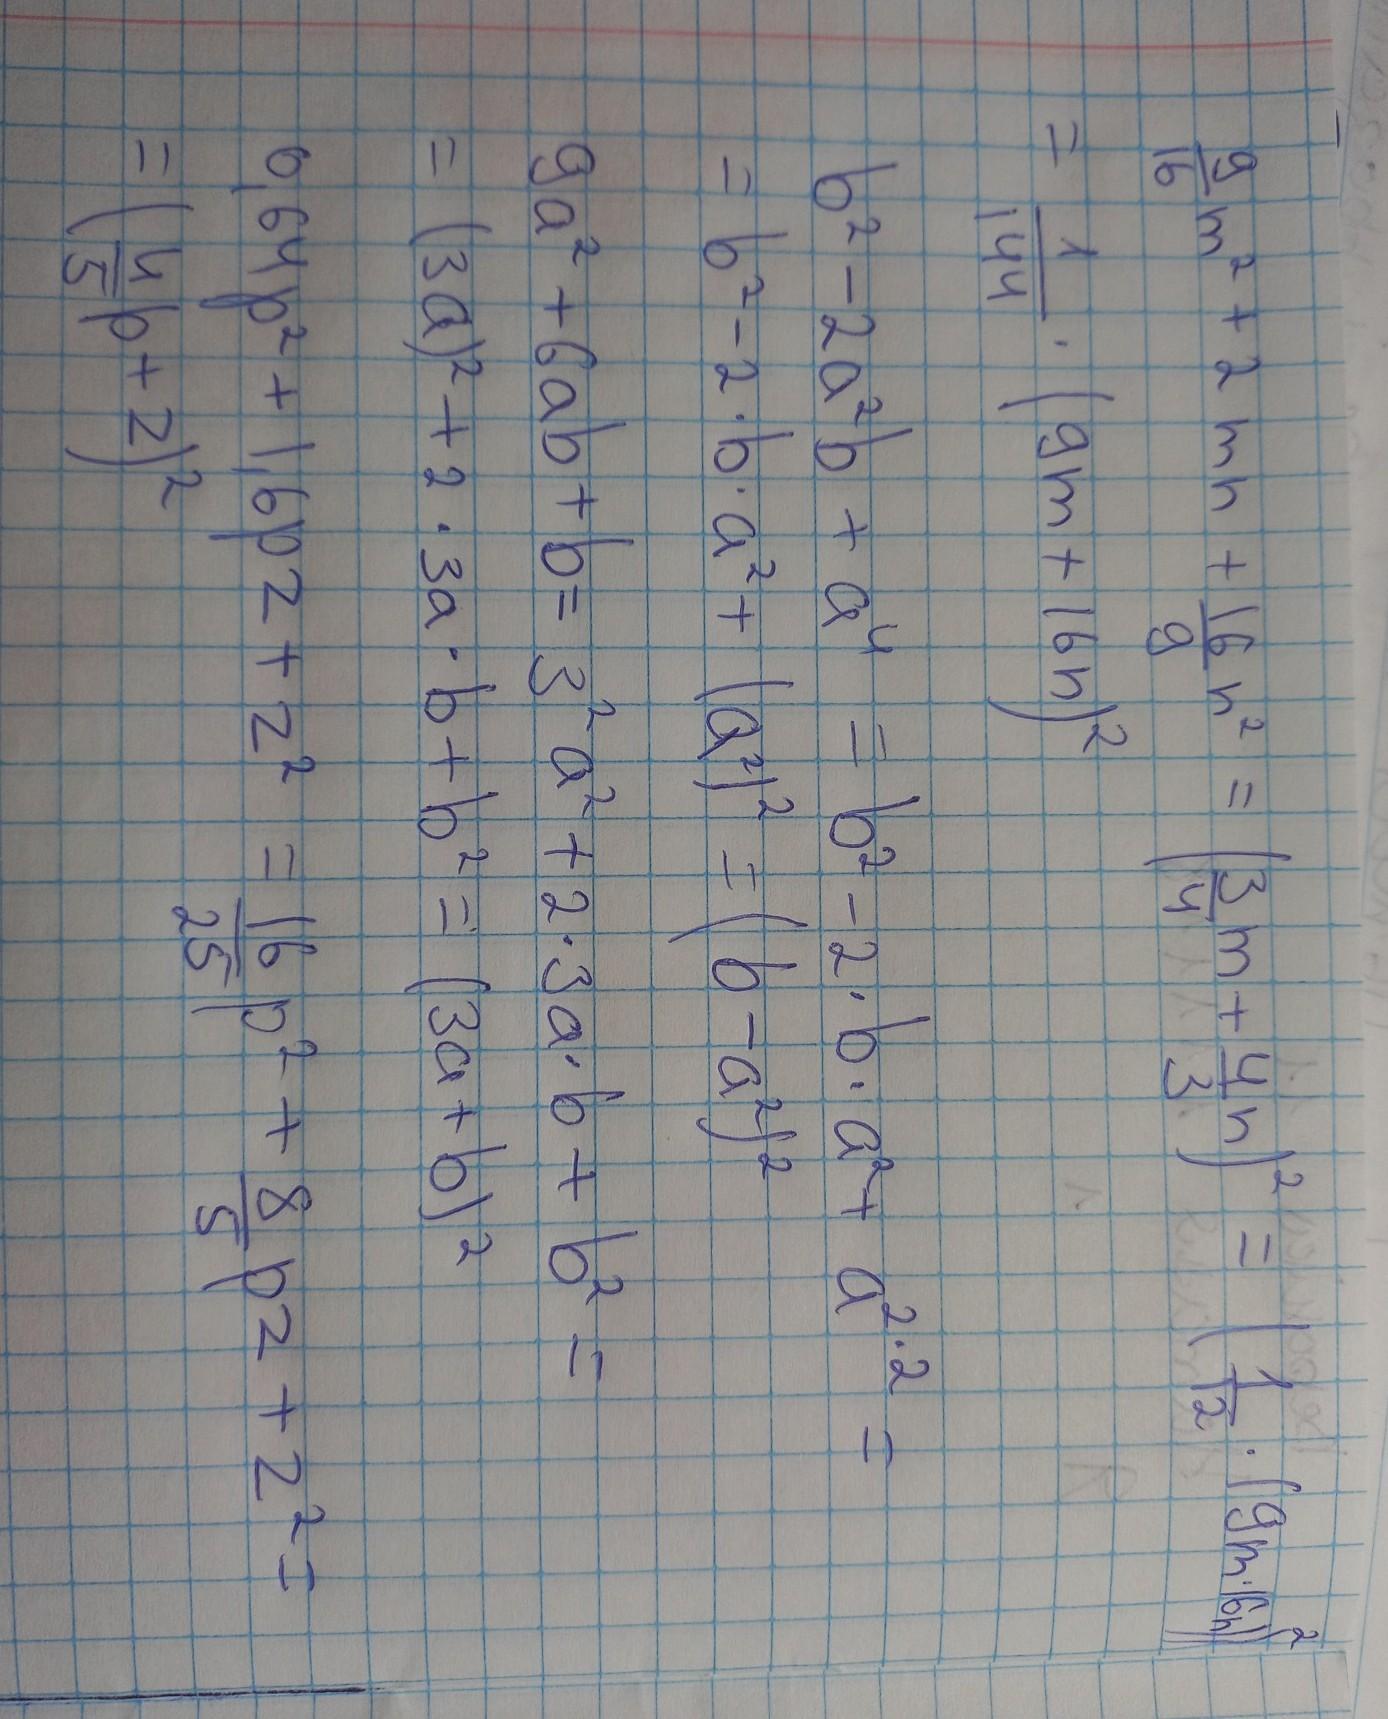 9/16 m² + 2mn + 16/9 n² = (3/4 m + 4/3 n)² = (1/12 · (9m·16n))²
= 1/144 · (9m + 16n)²
b² - 2a²b + a⁴ = b² - 2·b·a² + a²·² =
= b² - 2·b·a² + (a²)² = (b - a²)²
9a² + 6ab + b = 3²a² + 2·3a·b + b² =
= (3a)² + 2·3a·b + b² = (3a + b)²
0,64p² + 1,6pz + z² = 16/25 p² + 8/5 pz + z² =
= (4/5 p + z)²